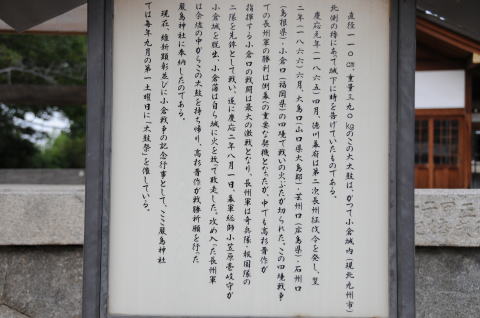 直径一一〇㎝、重量三九〇kgのこの大太鼓は、かつて小倉城内(現北九州市)
北側の櫓にあって城下に時を告げていたものである。
慶応元年(一八六五)四月、徳川幕府は第二次長州征伐令を発し、翌
二年(一八六六)六月、大島口(山口県大島郡)・芸州口(広島県)・石州口
(島根県)・小倉口(福岡県)の四境で戦いの火ぶたが切られた。この四境戦争
での長州軍の勝利は倒幕への重要な契機となったが、中でも高杉晋作が
指揮する小倉口の戦闘は最大の激戦となり、長州軍は奇兵隊・報国隊の
二隊を先鋒として戦い、遂に慶応二年八月一日、幕軍総師小笠原壱岐守が
小倉城を脱出、小倉藩は自ら城に火を放って敗走した。攻め入った長州軍
は余燼の中からこの太鼓を持ち帰り、高杉晋作が戦勝祈願を行った
厳島神社に奉納したのである。
現在、維新顕彰並びに小倉戦争の記念行事として、ここ厳島神社
では毎年九月の第一土曜日に「太鼓祭」を催している。